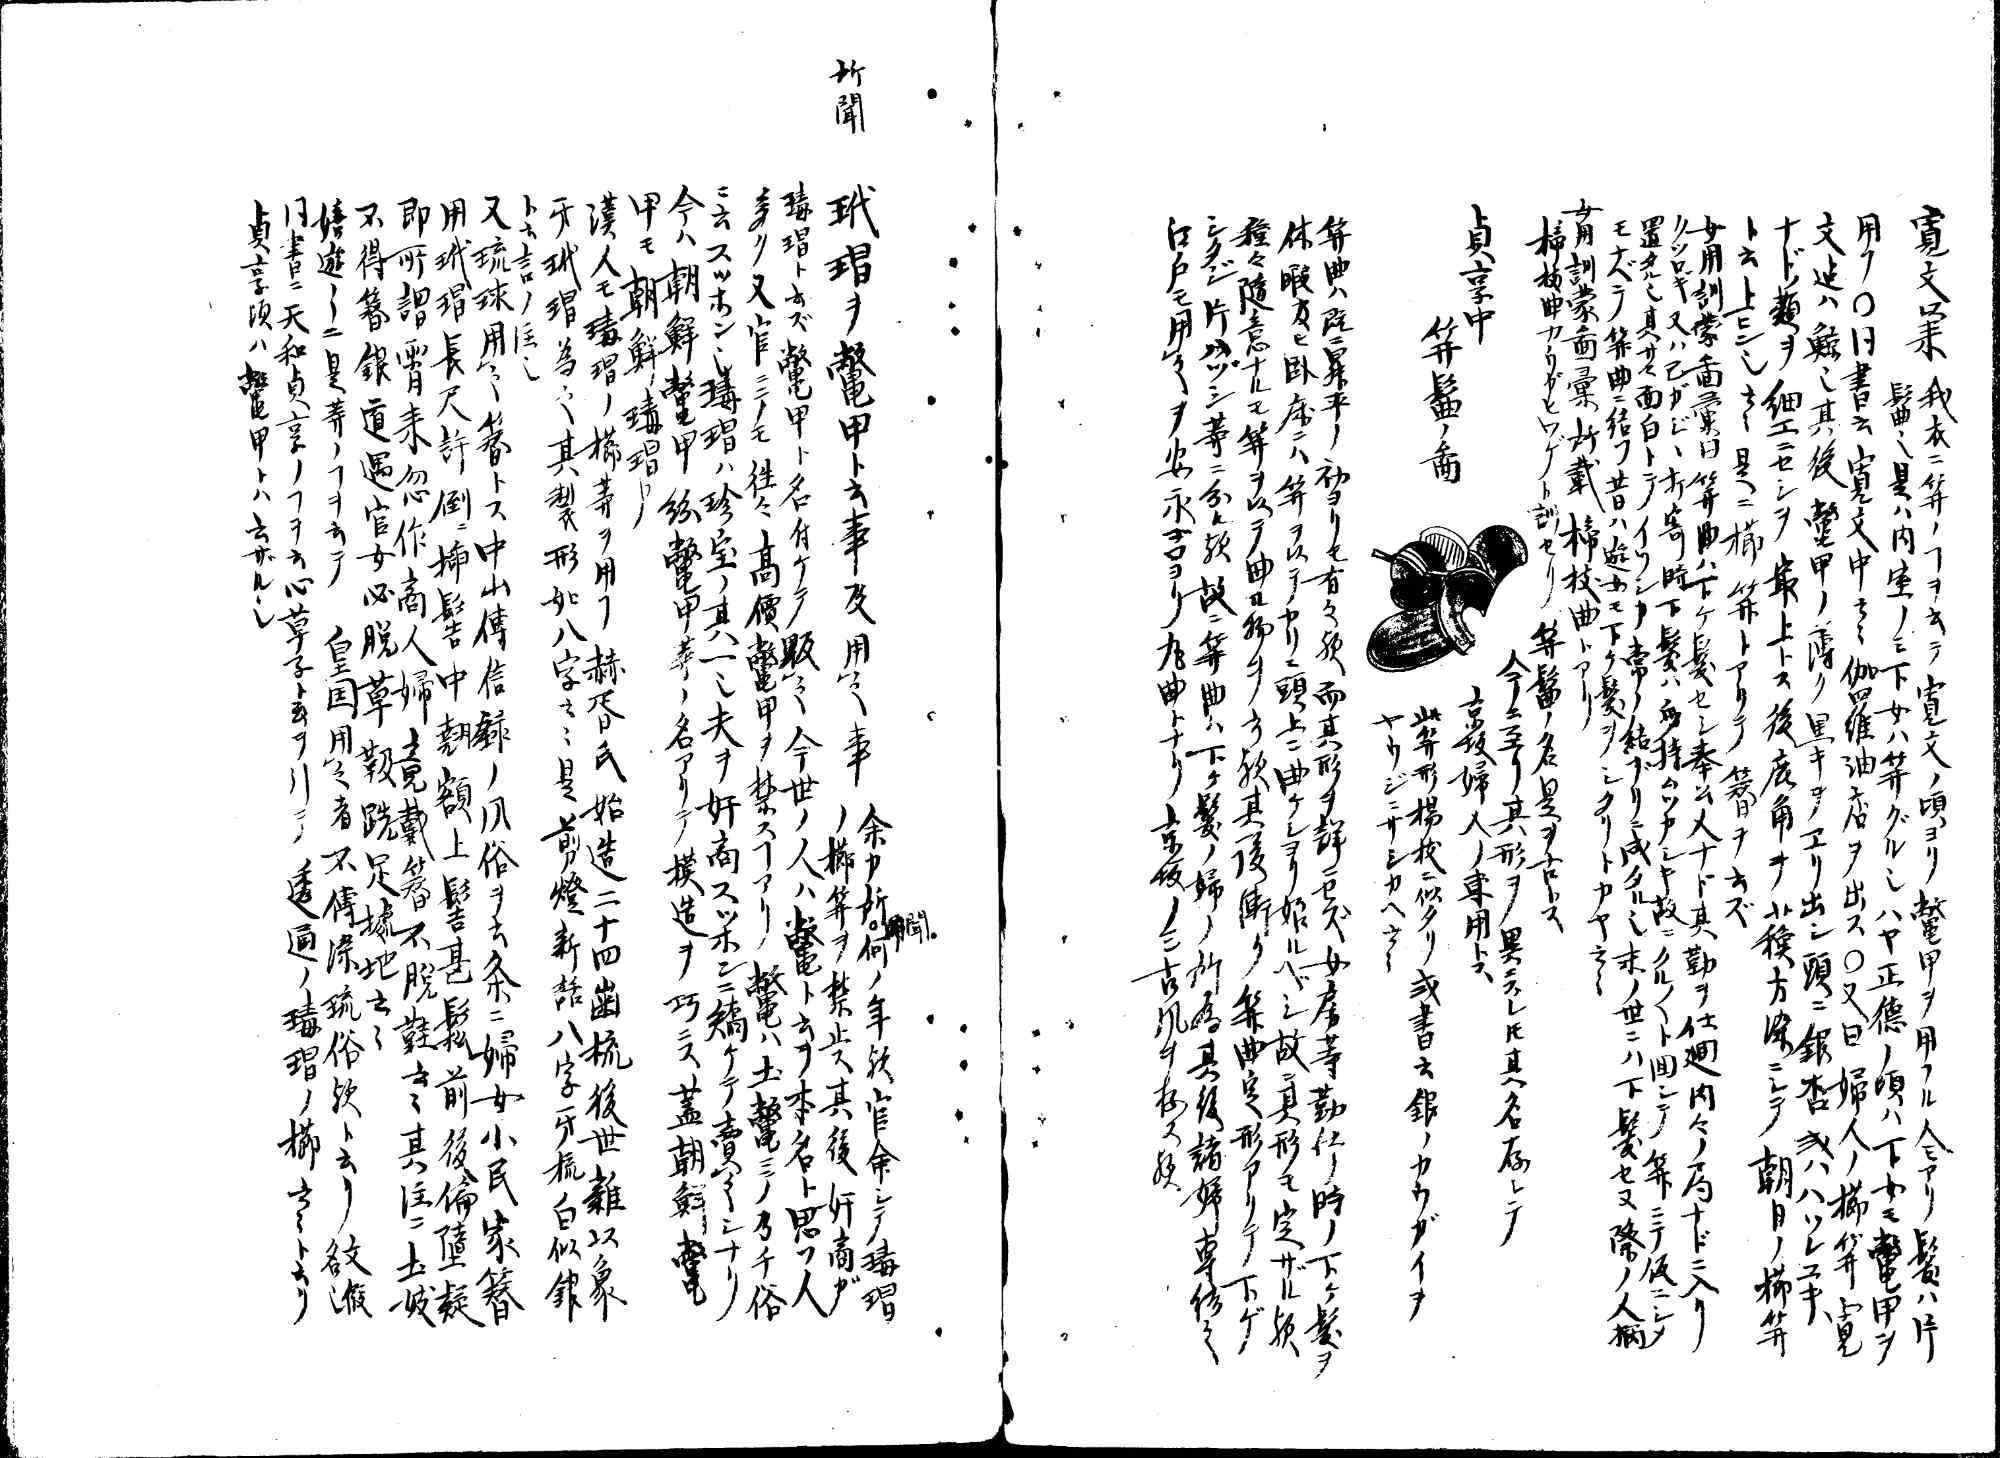 寛文以来 我衣ニ笄ノコヲ云テ寛文ノ頃ヨリ鼈甲ヲ用フル人モアリ鬢ハ片
髷也是ハ内室ノミ下女ハ笄グルシハヤ正徳ノ頃ハ下女モ鼈甲ヲ
用フ〇同書云寛文中云々伽羅油店ヲ出ス〇又曰婦人ノ櫛笄寛
文迄ハ鯨也其後鼈甲ノ薄ク黒キヲヱリ出シ頭ニ銀杏或ハ
ナドノ類ヲ細工ニセシヲ最上トス後鹿角ヲ蘇方染ニシテ朝日ノ櫛笄
ト云上ヒン也云々是ニ櫛笄トアリテ簪ヲ云ズ
女用訓蒙図彙曰笄曲ハ下ケ髪セシ奉公人ナド其勤ヲ仕廻内々ノ局ナドニ入リ
クツロギ又ハ己ガジヽ打寄時下髪ハ
置タル也其サマ面白トテイツシカ常ノ結ブリニ成タル也末ノ世ニハ下髪セヌ際ノ人
モナベテ笄曲ニ結フ昔ハ遊女モ下ケ髪ヲシタリトカヤ云々
女用訓蒙図彙所載 樢枝曲トアリ
カウガヒワゲト訓セリ 笄髷ノ名是ヲ古トス
貞享中 笄髷ノ図
今ニ至リ其形ヲ異ニスレモ其名存シテ
京坂婦人ノ専用トス
此笄形楊枝ニ似タリ 或書云銀ノカウガイヲ
ヤウジニサシカヘ云々
笄曲ハ既ニ昇平ノ初ヨリモ有之歟而其形ヲ詳ニセズ女房等勤仕ノ時ノ下ケ髪ヲ
休暇及ヒ臥床ニハ笄ヲ以テヤリニ頭上ニ曲ケシヨリ始ルベシ故ニ其形モ定ザル歟
種々随意ナルモ笄ヲ以テ曲ル物ヲ云歟其後漸ク笄曲定形アリテ下ゲ
シタジ片ハヅシ等ニ分ル歟故ニ笄曲ハ下ケ髪ノ婦ノ所為其後諸婦専
江戸モ用フヲ安永ゴロヨリ丸曲トナリ京坂ノミ古風ヲ存ス歟
所聞
玳瑁ヲ鼈甲ト云事及用フ事 余カ所聞。何ノ年歟官命シテ瑇瑁
ノ櫛笄ヲ禁止ス其後奸商ガ
瑇瑁ト云ズ鼈甲ト名付ケテ販之今世ノ人ハ鼈ト云ヲ本名ト思フ人
多リ又官ニテモ往々高價鼈甲ヲ禁スコアリ鼈ハ土鼈ニノ乃チ俗
ニ云スツホン也瑇瑁ハ珍宝ノ其一也夫ヲ奸商スツホンニ矯ケテ賣シナリ
今ハ朝鮮鼈甲紛鼈甲等ノ名アリテ模造ヲ巧ニス蓋朝鮮鼈
甲モ朝鮮ノ瑇瑁ト
漢人モ瑇瑁ノ櫛等ヲ用フ赫胥氏始造二十四歯梳後世雖以象
牙玳瑁為之其製形如八字云々是剪燈新話八字牙梳白似銀
ト云言ノ注也
又琉球用之簪トス中山傳信録ノ風俗ヲ云条ニ婦女小民家簪
用玳瑁長尺許倒ニ挿髻中翹額上髻甚鬆前後偏墮疑
即所謂宵来忽作商人婦亦戴簪不脱鞋云々其注ニ土妓
不得簪銀道遇官女必脱草靸跣足據地云々
嬉遊笑覧ニ是等ノコヲ云テ 皇国用之者不傳染琉俗歟ト云リ
同書ニ天和貞享ノコヲ云心草子ト云ヲ引テ透通ノ瑇瑁ノ櫛云々ト云リ
貞享頃ハ鼈甲トハ云ザル也